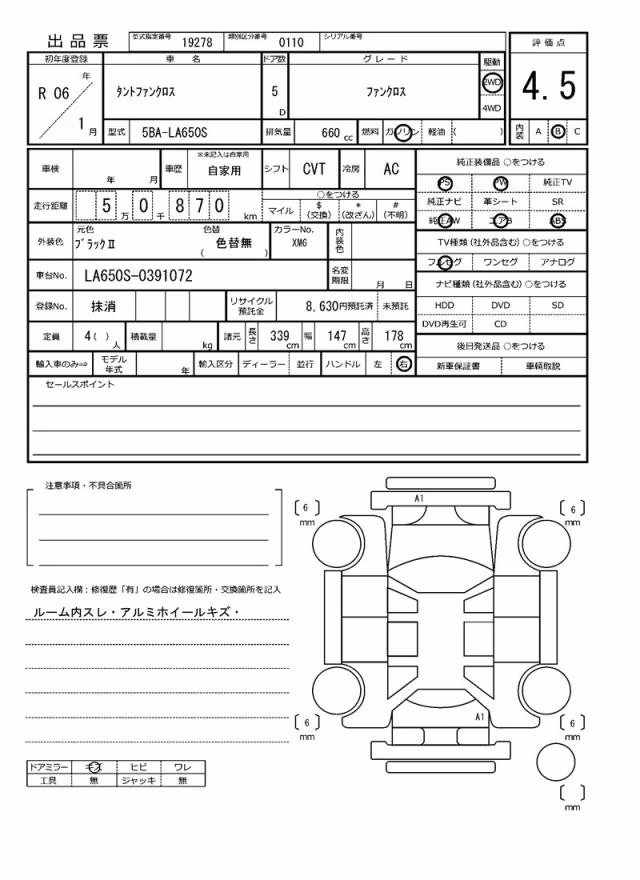 出品票 型式指定番号 19278 類別区分番号 0110 シリアル番号
評価点
初年度登録 車名 ドア数 グレード 駆動
R 06 年 1 月 タントファンクロス 5 D ファンクロス 2WD 4WD
4.5
型式 5BA-LA650S 排気量 660 cc 燃料 ガソリン 軽油 ( )
内装 A B C
車検 年 月 車歴 ※未記入は自家用 自家用 シフト CVT 冷房 AC
走行距離 5 万 0 千 8 7 0 km ○をつける
マイル $(交換) *(改ざん) #(不明)
外装色 元色 ブラックⅡ 色替 色替無 ( ) カラーNo. XM6 内装色
車台No. LA650S-0391072 名変期限 月 日
登録No. 抹消 リサイクル預託金 8,630円預託済 未預託
定員 4 ( ) 人 積載量 kg 諸元 長さ 339 cm 幅 147 cm 高さ 178 cm
輸入車のみ⇒ モデル年式 年 輸入区分 ディーラー 並行 ハンドル 左 右
純正装備品 ○をつける
PS PW 純正TV
純正ナビ 革シート SR
純正AW エアB ABS
TV種類(社外品含む) ○をつける
フルセグ ワンセグ アナログ
ナビ種類(社外品含む) ○をつける
HDD DVD SD
DVD再生可 CD
後日発送品 ○をつける
新車保証書 車輌取説
セールスポイント
注意事項・不具合箇所
検査員記入欄:修復歴「有」の場合は修復箇所・交換箇所を記入
ルーム内スレ・アルミホイールキズ・
ドアミラー キズ ヒビ ワレ
工具 無 ジャッキ 無
A1
[ 6 ] mm
[ 6 ] mm
A1
[ 6 ] mm
[ 6 ] mm
[ ] mm